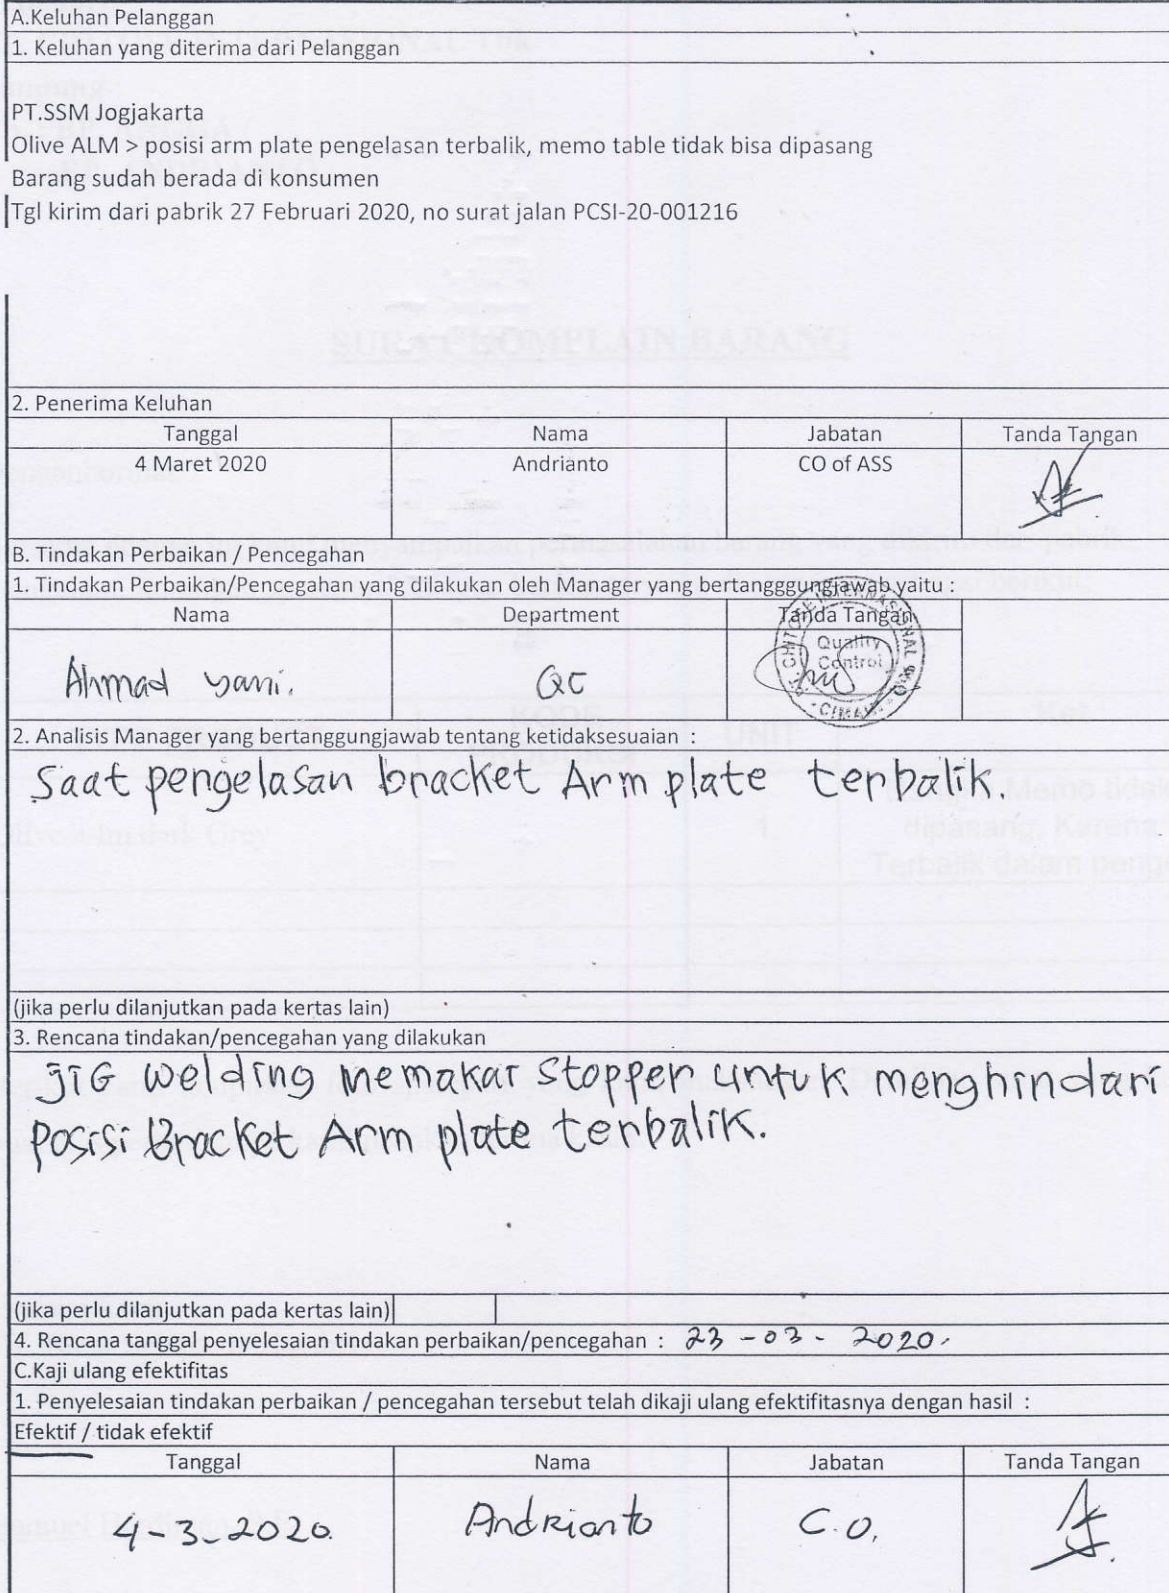 A.Keluhan Pelanggan
1. Keluhan yang diterima dari Pelanggan
PT.SSM Jogjakarta
Olive ALM > posisi arm plate pengelasan terbalik, memo table tidak bisa dipasang
Barang sudah berada di konsumen
Tgl kirim dari pabrik 27 Februari 2020, no surat jalan PCSI-20-001216
SURAT KOMPLAIN BARANG
2. Penerima Keluhan
Tanggal Nama Jabatan Tanda Tangan
4 Maret 2020 Andrianto CO of ASS
B. Tindakan Perbaikan / Pencegahan
1. Tindakan Perbaikan/Pencegahan yang dilakukan oleh Manager yang bertangggungjawab yaitu :
Nama Department Tanda Tangan
Ahmad yani. QC
Quality
Control
CIMAHI
2. Analisis Manager yang bertanggungjawab tentang ketidaksesuaian :
Saat pengelasan bracket Arm plate terbalik.
(jika perlu dilanjutkan pada kertas lain)
3. Rencana tindakan/pencegahan yang dilakukan
JIG welding memakai Stopper untuk menghindari
posisi Bracket Arm plate terbalik.
(jika perlu dilanjutkan pada kertas lain)
4. Rencana tanggal penyelesaian tindakan perbaikan/pencegahan : 23 - 03 - 2020.
C.Kaji ulang efektifitas
1. Penyelesaian tindakan perbaikan / pencegahan tersebut telah dikaji ulang efektifitasnya dengan hasil :
Efektif / tidak efektif
Tanggal Nama Jabatan Tanda Tangan
4-3-2020. Andrianto C.O.